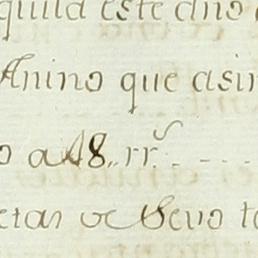 quila este año
Anino que asin
o a 48,, rr.^s
ctas vc Sevo t